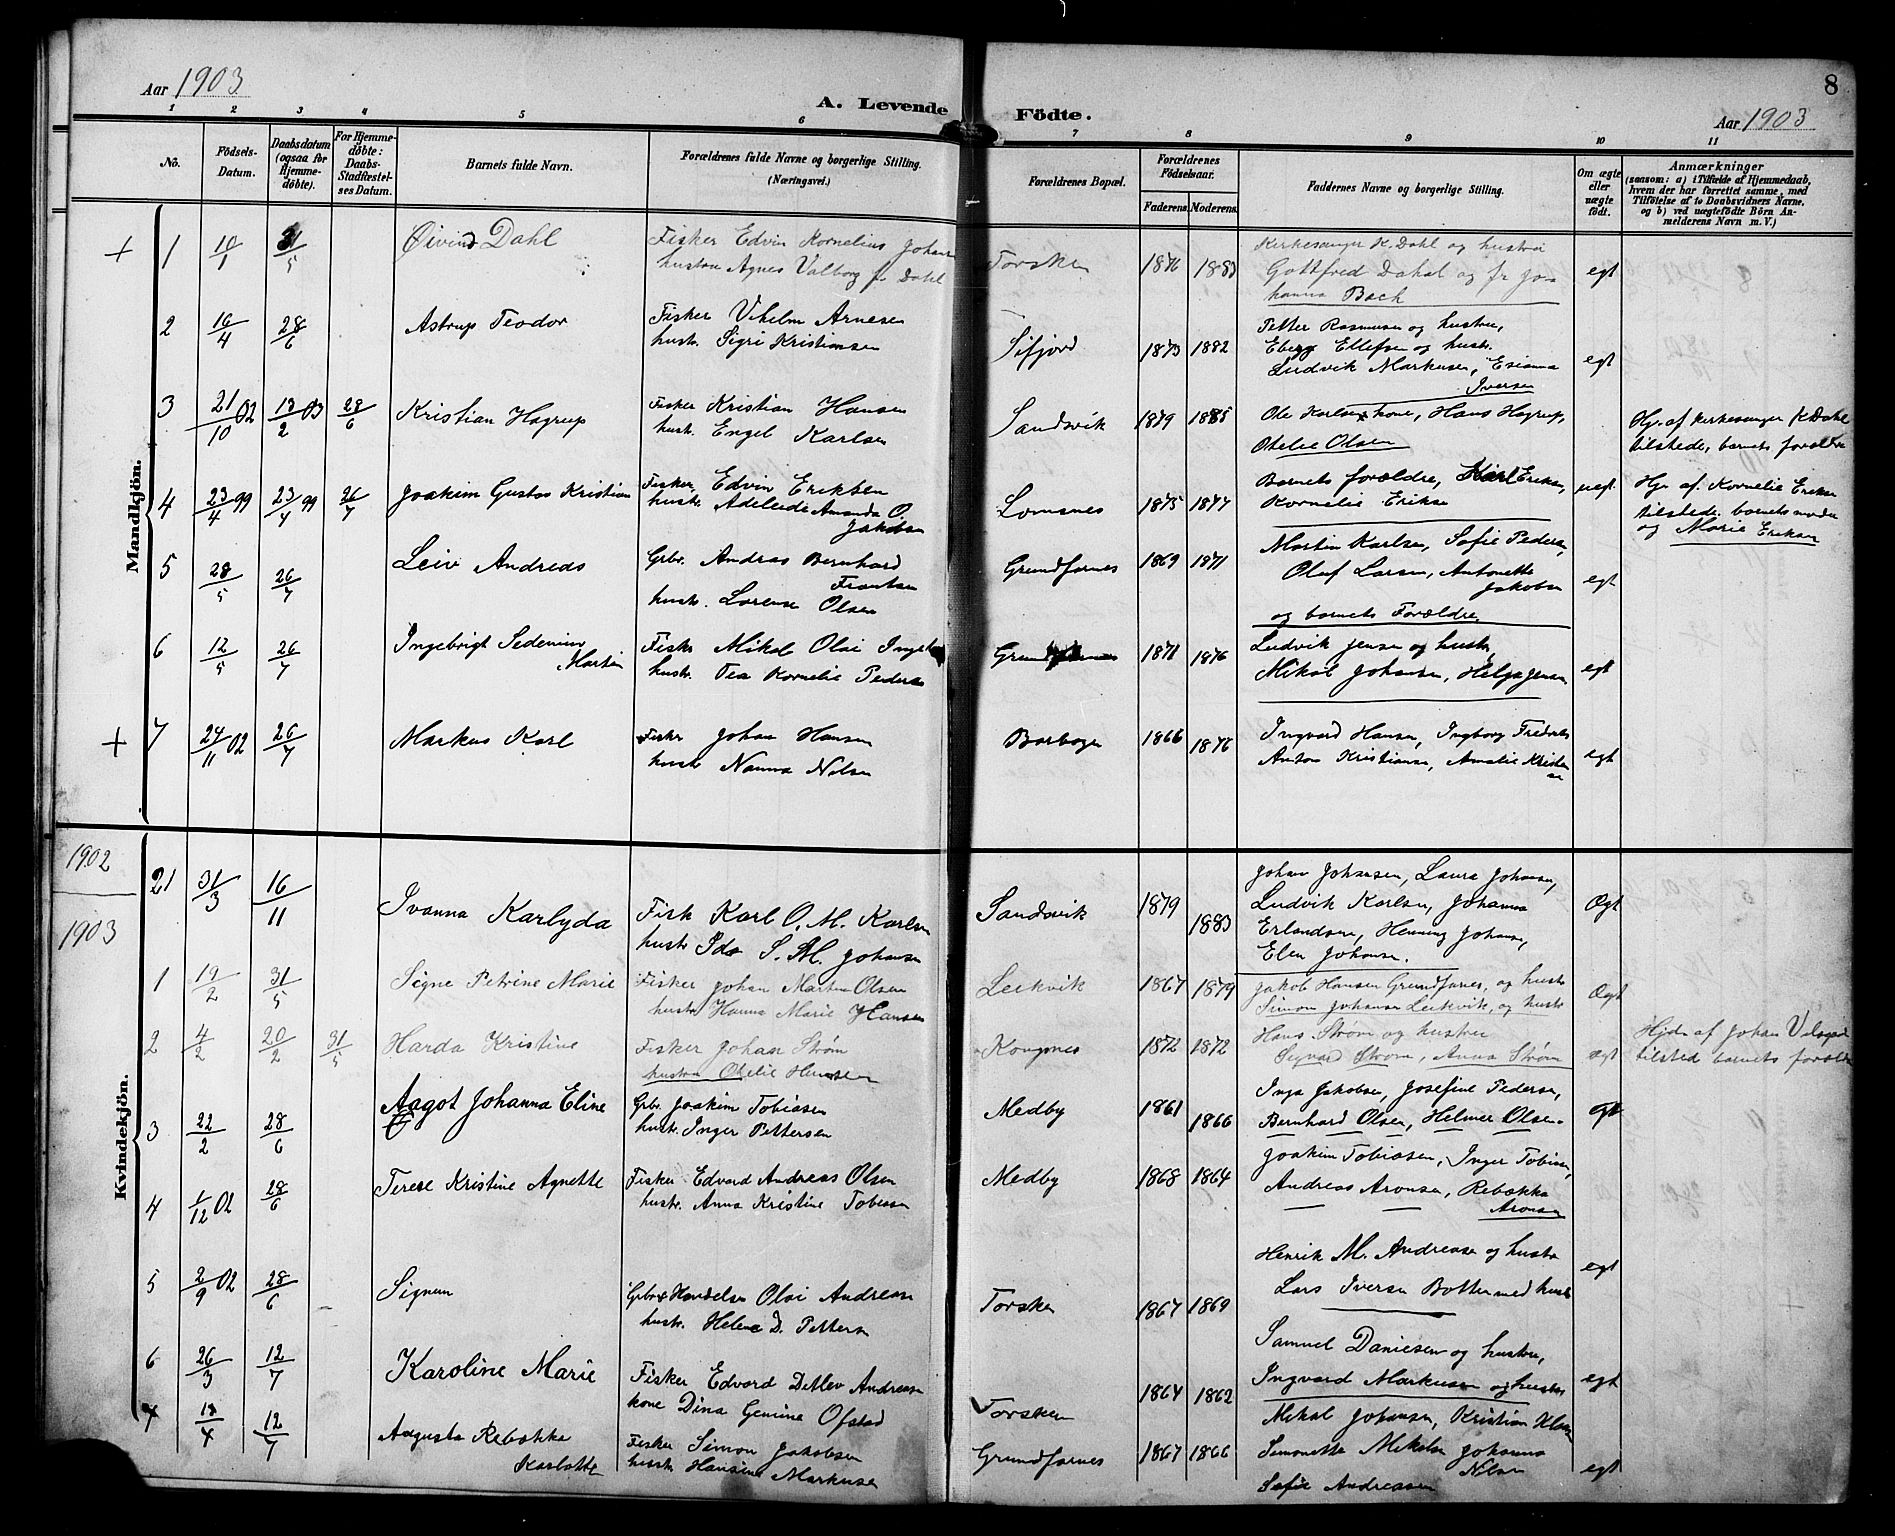 8
Aar 1903
A. Levende Födte.
Aar 1903
1 2 3 4 5 6 7 8 9 10 11
No.
Födsels-Datum.
Daabsdatum (ogsaa for Hjemme-döbte).
For Hjemme-döbte: Daabs-Stadfæstel-ses Datum.
Barnets fulde Navn.
Forældrenes fulde Navne og borgerlige Stilling.
(Næringsvei.)
Forældrenes Bopæl.
Forældrenes Födselsaar.
Faderens. Moderens.
Faddernes Navne og borgerlige Stilling.
Om ægte eller uægte födt.
Anmærkninger
(saasom: a) i Tilfælde af Hjemmedaab,
hvem der har forrettet samme, med
Tilföielse af to Daabsvidners Navne,
og b) ved uægtefödte Börn An-
melderens Navn m. V.)
Mandkjön.
+ 1 10/1 31/5 Øivind Dahl
Fisker Edvin Kornelius Johans
hustru Agnes Valborg f. Dahl
Torsken 1876 1883
Kirkesanger K. Dahl og hustru
Gottfred Dahl og fr Jo-
hanna Bach
egt
2 16/4 28/6 Astrup Teodor
Fisker Vilhelm Arnesen
hustr. Sigri Kristiansen
Sifjord 1873 1882
Petter Rasmusen og hustru,
Ellefsen og hustr.
Ludvik Markusen,
Iversen
egt
3 21/10 02 13/2 03 28/6 Kristian Hagrup
Fisker Kristian Hansen
hustr. Engel Karlsen
Sandsvik 1879 1885
Ole Karlsen kone, Hans Hagrup,
Otelie Olsen
Hj. af kirkesanger K Dahl
tilstede, barnets forældre
4 23/4 99 23/4 99 26/7 Joakim Gustav Kristian
Fisker Edvin Eriksen
hustr. Adeleide Amanda O.
Jakobsen
Lomsnes 1875 1877
Barnets forældre, Karl Eriksen,
Kornelie Eriksen
uegt.
Hj. af. Kornelie Eriksen
tilstede. barnets moder
og Marie Eriksen
5 28/5 26/7 Leiv Andreas
Grbr. Andreas Bernhard
Frantsen
hustr. Lorense Olsen
Grundfarnes 1869 1871
Martin Karlsen, Sofie Pedersen,
Oluf Larsen, Antonette
Jakobsen
og barnets Forældre
egt
6 12/5 26/7 Ingebrigt
Martin
Fisker Mikal Olai
hustr. Tea Kornelie Pedersen
Grundfarnes 1871 1876
Ludvik Jensen og hustr,
Mikal Johansen, Helga Jensen
egt
+ 7 24/11 02 26/7 Markus Karl
Fisker Johan Hansen
hustr Nanna Nilsen
1866 1876
Ingvard Hansen, Ingborg Frederiks
Anton Kristiansen, Amalie Kristen
sen
egt
1902
Kvindekjön.
21 31/3 16/11 Ivanna Karlyda
Fisk Karl O. M. Karlsen
hustr Ida S. M. Johansen
Sandsvik 1879 1883
Johan Johansen, Laura Johansen,
Ludvik Karlsen, Johanna
Erlandsen, Henning Johansen,
Elen Johansen.
Ægt
1903
1 19/2 31/5 Signe Petrine Marie
Fisker Johan Martin Olsen
hustr Hanna Marie Hansen
Leikvik 1867 1879
Jakob Hansen Grundfarnes, og hustr
Simon Johansen Leikvik, og hustr
Ægt
2 4/2 20/2 31/5 Harda Kristine
Fisker Johan Strøm
hustru Otelie Hansen
Kongsnes 1872 1872
Hans Strøm og hustru
Sigvard Strøm, Anna Strøm
ægt
Hjd. af Johan
tilsted barnets forældre
3 22/2 28/6 Aagot Johanna Eline
Grbr. Joakim Tobiasen
hustr. Inger Pettersen
Medby 1861 1866
Inga Jakobsen, Josefine Pedersen,
Bernhard Olsen, Helmer Olsen
egt
4 1/12 02 28/6 Terese Kristine Agnette
Fisker Edvard Andreas Olsen
hustr. Anna Kristine Tobiasen
Medby 1868 1864
Joakim Tobiasen, Inger Tobiasen,
Andreas Aronsen, Rebækka
Aronsen
5 2/9 02 28/6 Signun
Grbr Handelsm Olai Andreasen
hustr. Helene D. Pettersen
Torsken 1867 1869
Henrik M. Andreasen og hustru
Lars Iversen Botten med hustr
egt
6 26/3 12/7 Karoline Marie
Fisker Edvard Detlev Andreasen
kone Dina Gemine Ofstad
Torsken 1864 1862
Samuel Danielsen og hustru,
Ingvard Markusen og hustru
egt
7 13/4 12/7 Augusta Rebækka
Karlotte
Fisker Simon Jakobsen
hustr Hansine Markusen
Grundfarnes 1867 1866
Mikal Johansen, Kristian
Simonette Mikalsen Johanna
Nilsen
Sofie Andreasen
egt